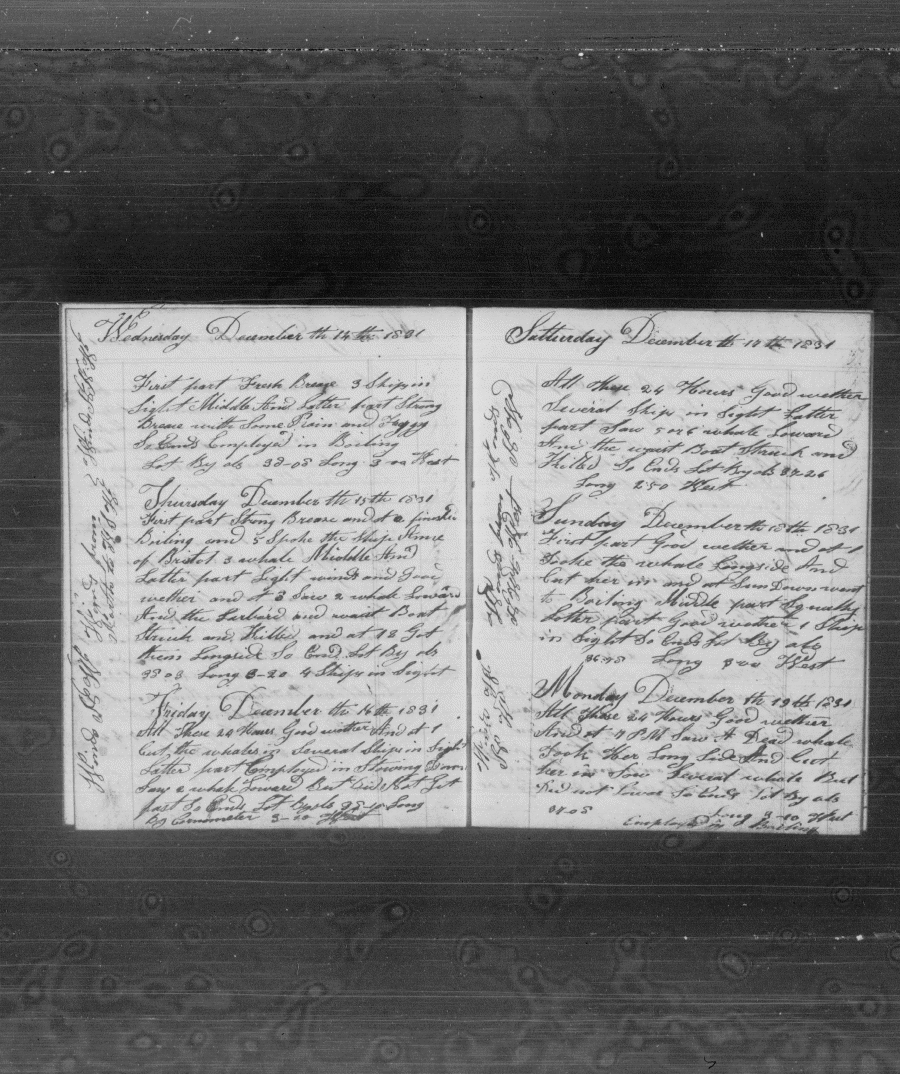 Wednesday December th 14th 1831
First part Fresh Breaze 3 Ships in
Sight Middle And Latter part Strong
Breaze with Some Rain and Foggy
So Ends Employed in Boiling
Lat By obs 38-08 Long 3 West
Thursday December th 15th 1831
First part Strong Breaze and at 2 finished
Boiling and 5 Spoke the Ship Anne
of Bristol 3 whale Middle And
Latter part Light winds and Good
wether and at 3 Saw 2 whale Loward
And the Larbard and waist Boat
Struck and Killed and at 12 Got
them Longside So Ends Lat By obs
38 03 Long 3-20 4 Ships in Sight
Friday December th 16th 1831
All These 24 Hours Good wether And at 1
Cut the whales in Several Ships in Sight
Latter part Employed in Stowing Down
Saw 2 whale Loward But Did Not Get
fast So Ends Lat By obs Long
By Cronometer 3-10 West
Winds
Winds from
Saturday December th 17th 1831
All These 24 Hours Good wether
Several Ship in Sight Latter
part Saw 5 or 6 whale Loward
And the waist Boat Struck and
Killed So Ends Lat By obs 37-26
Long 2 50 West
Sunday December th 18th 1831
First part Good wether and at 1
Tooke the whale Longside And
Cut her in and at Sun Down went
to Boiling Middle part Squally
Latter part Good wether 1 Ship
in Sight So Ends Lat By obs
Long West
Monday December th 19th 1831
All These 24 Hours Good wether
And at 7 PM Saw A Dead whale
Took Her Long Side And Cut
her in Saw Several whale But
Did not Lower So Ends Lat By obs
37-08 Long 3-10 West
Employed in Boiling